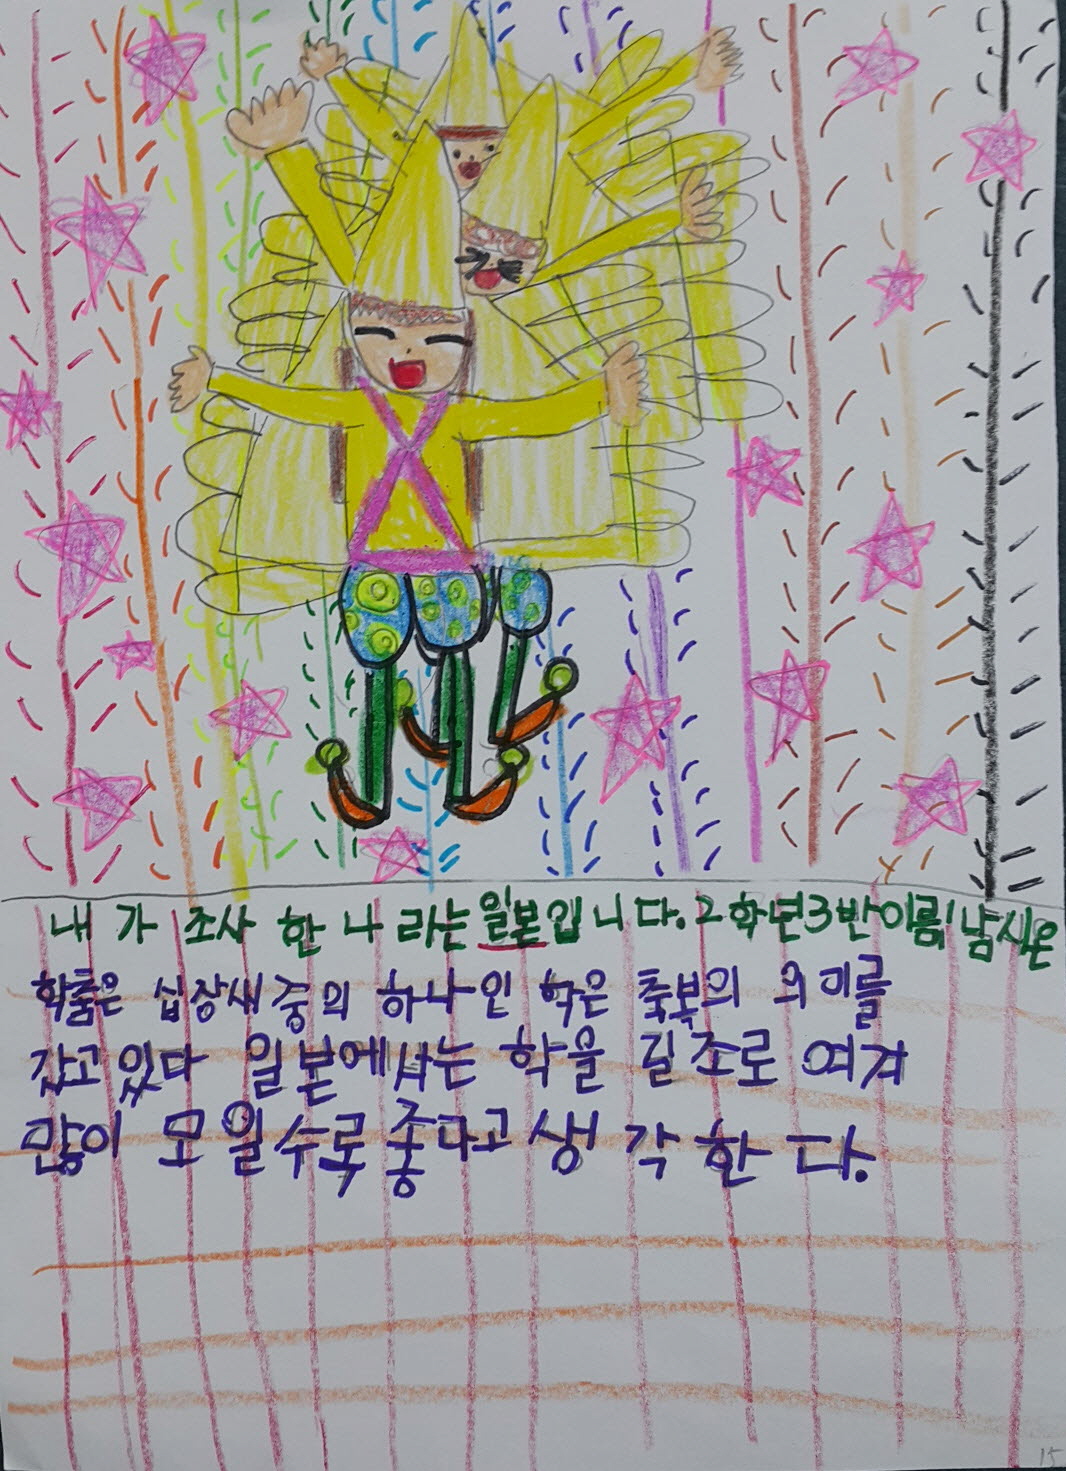 내가 조사한 나라는 일본입니다. 2학년3반이름!남시은
학춤은 십장새중의 하나인 학은 축복의 의미를
갔고있다 일본에서는 학을 길조로 여겨
많이 모일수록 좋다고 생각한다.
15